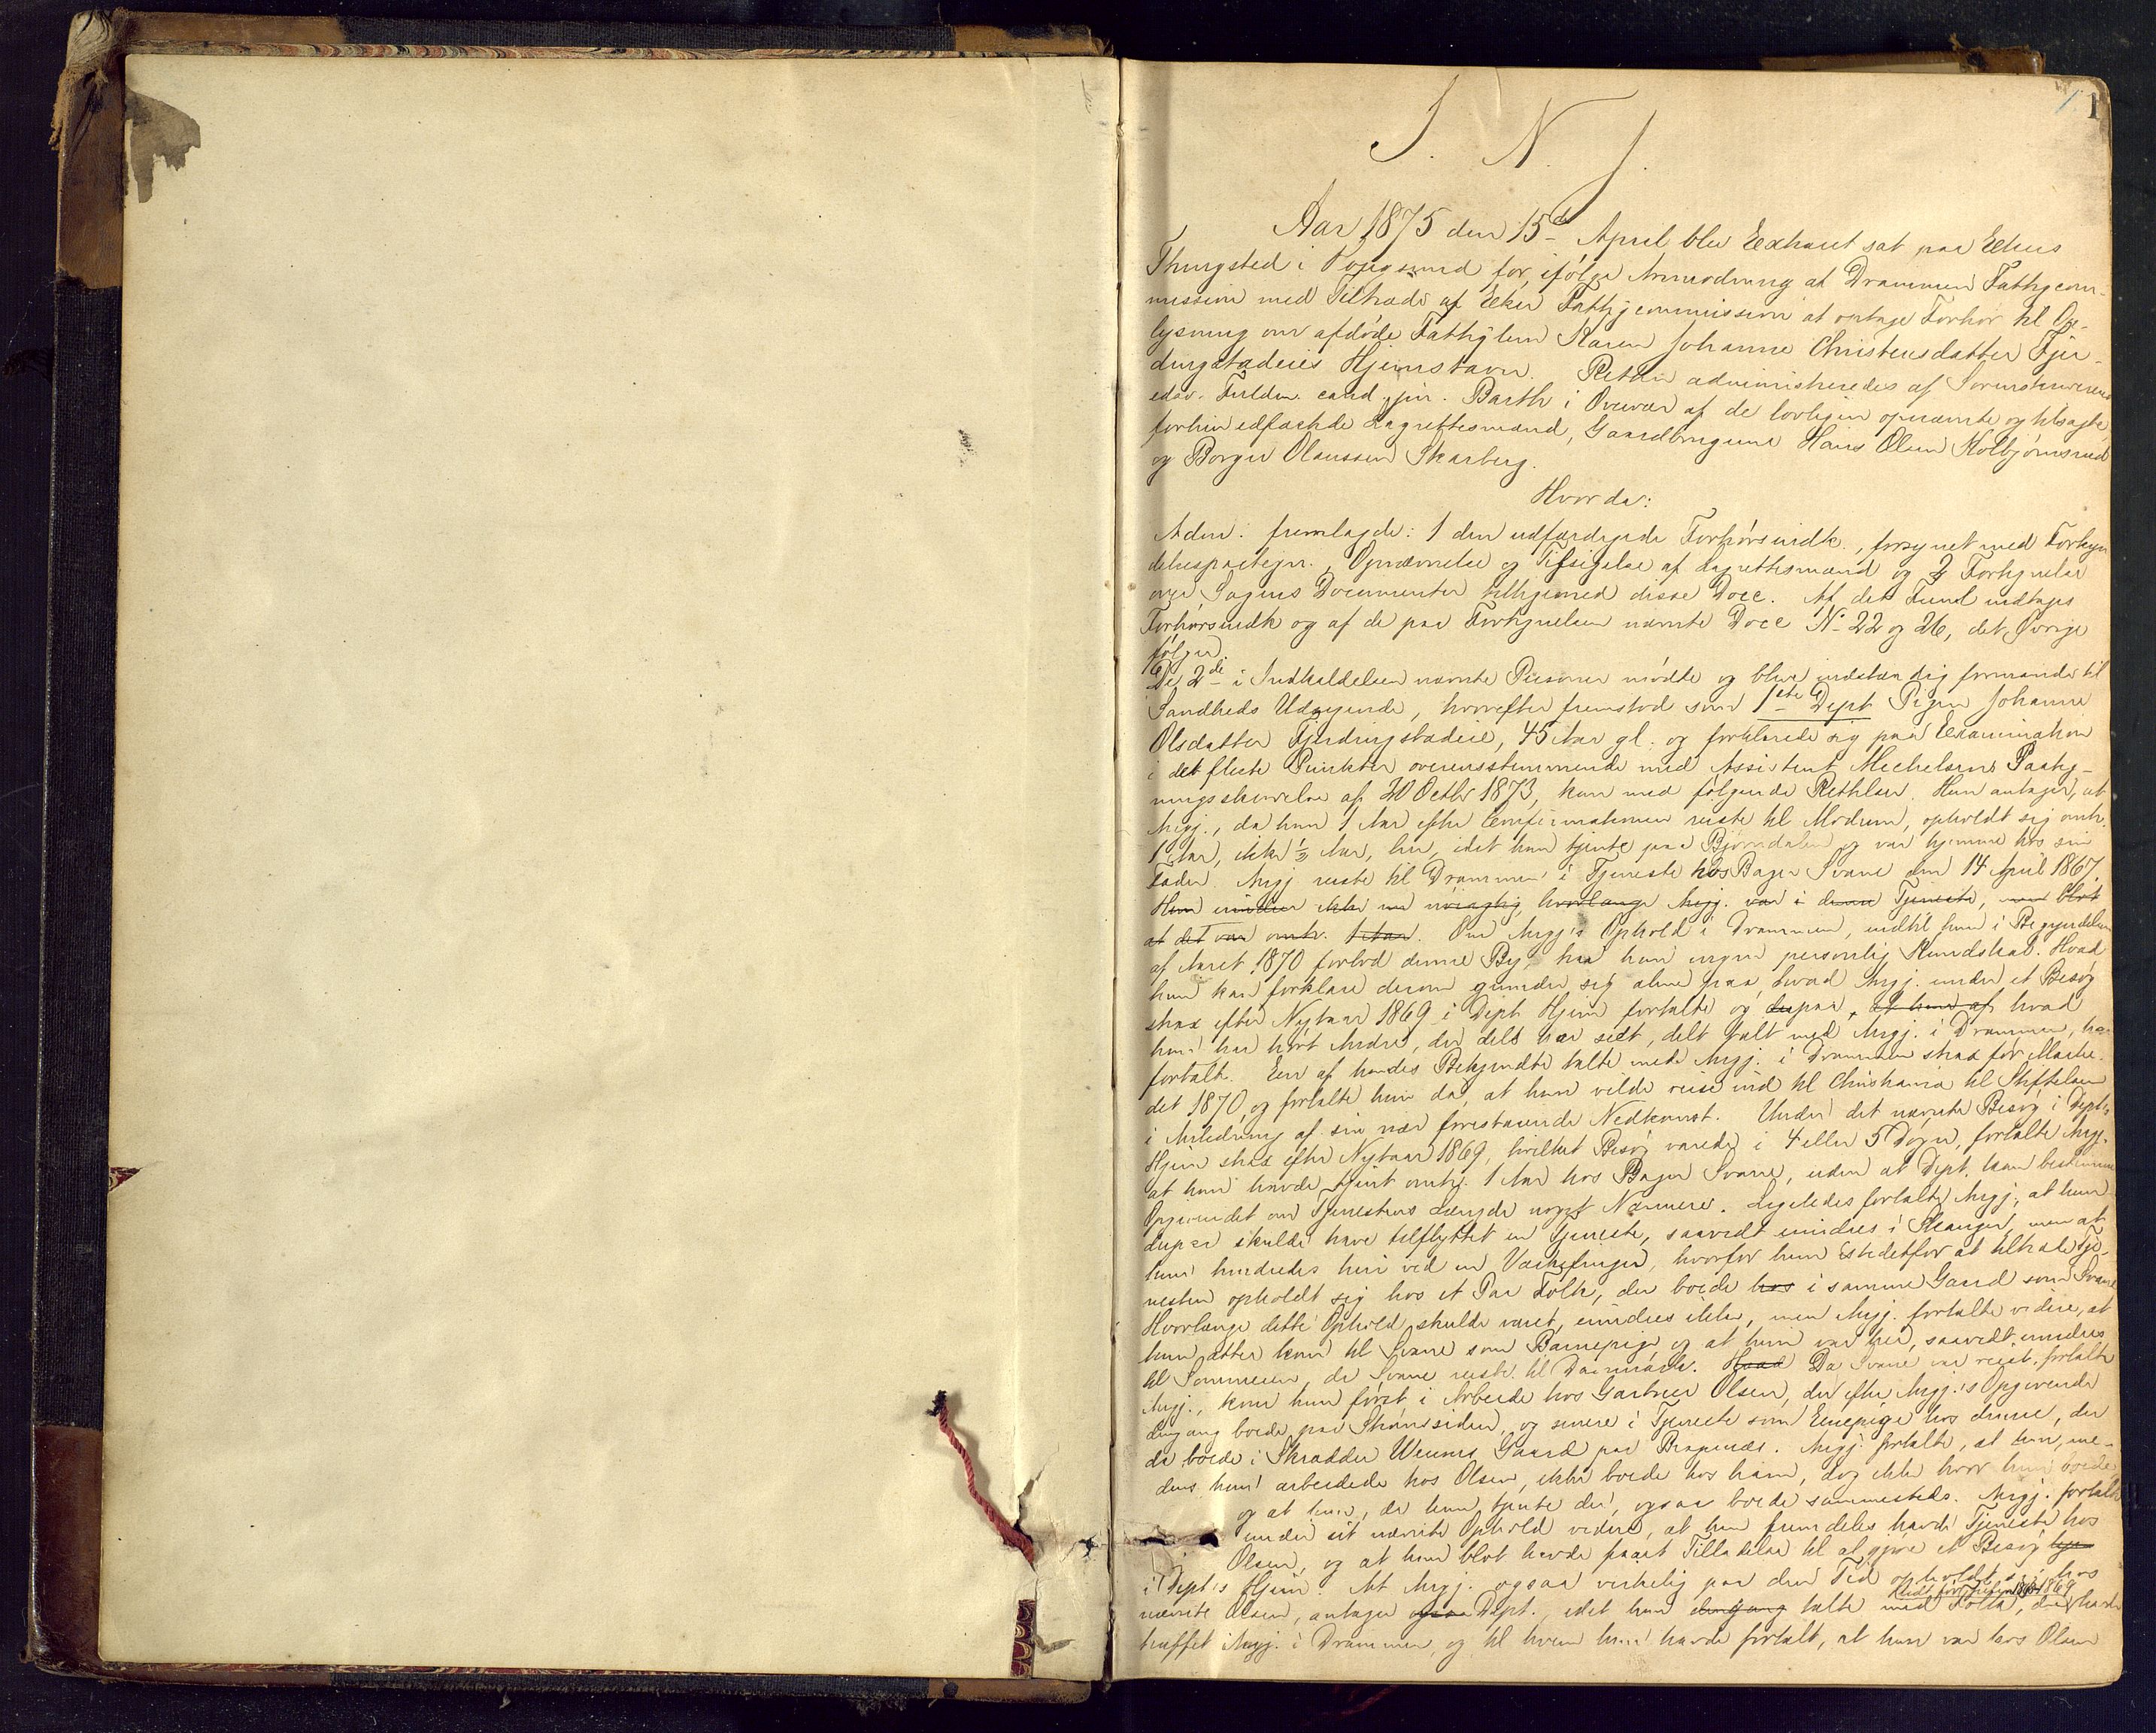 1
I. N. J.
Aar 1875 den 15de April blev Extraret sat paa Ekers
Thingsted i Vestfossen for, ifølge Anmodning af Drammens Fattigcom-
mission med Tiltræde af Eker Fattigcommission at optage Forhør til Op-
lysning om afdøde Fattiglem Karen Johanne Christensdatter Fjer-
dingstadeies Hjemstavn. Retten administreredes af Sorenskriverens
edsv. Fuldm. cand. jur. Barth i Overvær af de lovligen opnævnte og tilsagte
forhen edfæstede Lagrettesmænd, Gaardbrugerne Hans Olsen Kolbjørnsrud
og Borger Olaussen Skarberg.
Hvorda:
Adm. fremlagde: 1 den udfærdigede Forhørsindk., forsynet med Forkyn
delsespaategn., Opnævnelse og Tilsigelse af Lagrettesmænd og 2 Fortegnelse
over Sagens Documenter tilligemed disse Docc. Af det Freml. indtages
Forhørsindk og af de paa Fortegnelsen nævnte Docc No 22 og 26, det Øvrige
følger.
De 2de i Indkaldelsen nævnte Personer mødte og blev indstændig formanede til
Sandheds Udsigende, hvorefter fremstod som 1ste Dept Pigen Johanne
Olsdatter Fjerdingstadeie, 45 Aar gl. og forklarede sig paa Examination
i det fleste Punkter overensstemmende med Assistent Mechelsens Paateg-
ningsskrivelse af 20 Octbr 1873, kun med følgende Rettelser. Hun antager, at
Angj., da hun 1 Aar efter Confirmationen reiste til Modum, opholdt sig omtr.
1 Aar, ikke ½ Aar, her, idet hun tjente paa Bjørndalen og var hjemme hos sin
Fader. Angj. reiste til Drammen i Tjeneste hos Bager Svane den 14 April 1867.
Hun mindes ikke nu nøiagtig, hvorlænge Angj. var i denne Tjeneste, men blot
at det var omtr. 1 Aar. Om Angj's Ophold i Drammen, indtil hun i Begyndelsen
af Aaret 1870 forlod denne By, har hun ingen personlig Kundskab. Hvad
hun kan forklare derom grunder sig alene paa hvad Angj. under et Besøg
strax efter Nytaar 1869 i Dept Hjem fortalte og paa, hvad
hun har hørt Andre, der dels har seet, delt talt med Angj. i Drammen, har
fortalt. En af hendes Bekjendte talte med Angj. i Drammen strax før Marke-
det 1870 og fortalte hun da, at hun vilde reise ind til Christiania til Stiftelsen
i Anledning af sin nær forestaaende Nedkomst. Under det nævnte Besøg i Dept's
Hjem strax efter Nytaar 1869, hvilket Besøg varede i 4 eller 5 Døgn, fortalte Angj.
at hun havde tjent omtr. 1 Aar hos Bager Svane, uden at Dept. kan bestemme
Opgivendet om Tjenestens Længde noget Nærmere. Ligeledes fortalte Angj., at hun
derpaa skulde have tilflyttet en Tjeneste, saavidt mindes i Stranger, men at
hun hindredes heri ved en Værkefinger, hvorfor hun istedetfor at tiltræde Tje-
nesten opholdt sig hos et Par Folk, der boede hos i samme Gaard som Svane
Hvorlænge dette Ophold skulde varet, mindes ikke, men Angj. fortalte videre, at
hun atter kom til Svane som Barnepige og at hun var her, saavidt mindes
til Sommeren, da Svane reiste til Danmark. Hvad Da Svane var reist, fortalte
Angj., kom hun først i Arbeide hos Gartner Olsen, der efter Angj.'s Opgivende
dengang boede paa Strømssiden, og senere i Tjeneste som Enepige hos denne, der
da boede i Skrædder Wenns Gaard paa Bragernæs. Angj. fortalte, at hun, me-
dens hun arbeidede hos Olsen, ikke boede hos ham, dog ikke hvor hun boede,
og at hun, da hun tjente der, ogsaa boede sammesteds. Angj. fortalte
under sit nævnte Ophold videre, at hun fremdeles havde Tjeneste hos
Olsen, og at hun blot havde faaet Tilladelse til at gjøre et Besøg
i Dept's Hjem. At Angj. ogsaa virkelig paa den Tid opholdt sig hos
nævnte Olsen, antager ogsaa Dept., idet hun dengang talte med Folk, der havde
truffet Angj. i Drammen, og til hvem hun havde fortalt, at hun var hos Olsen